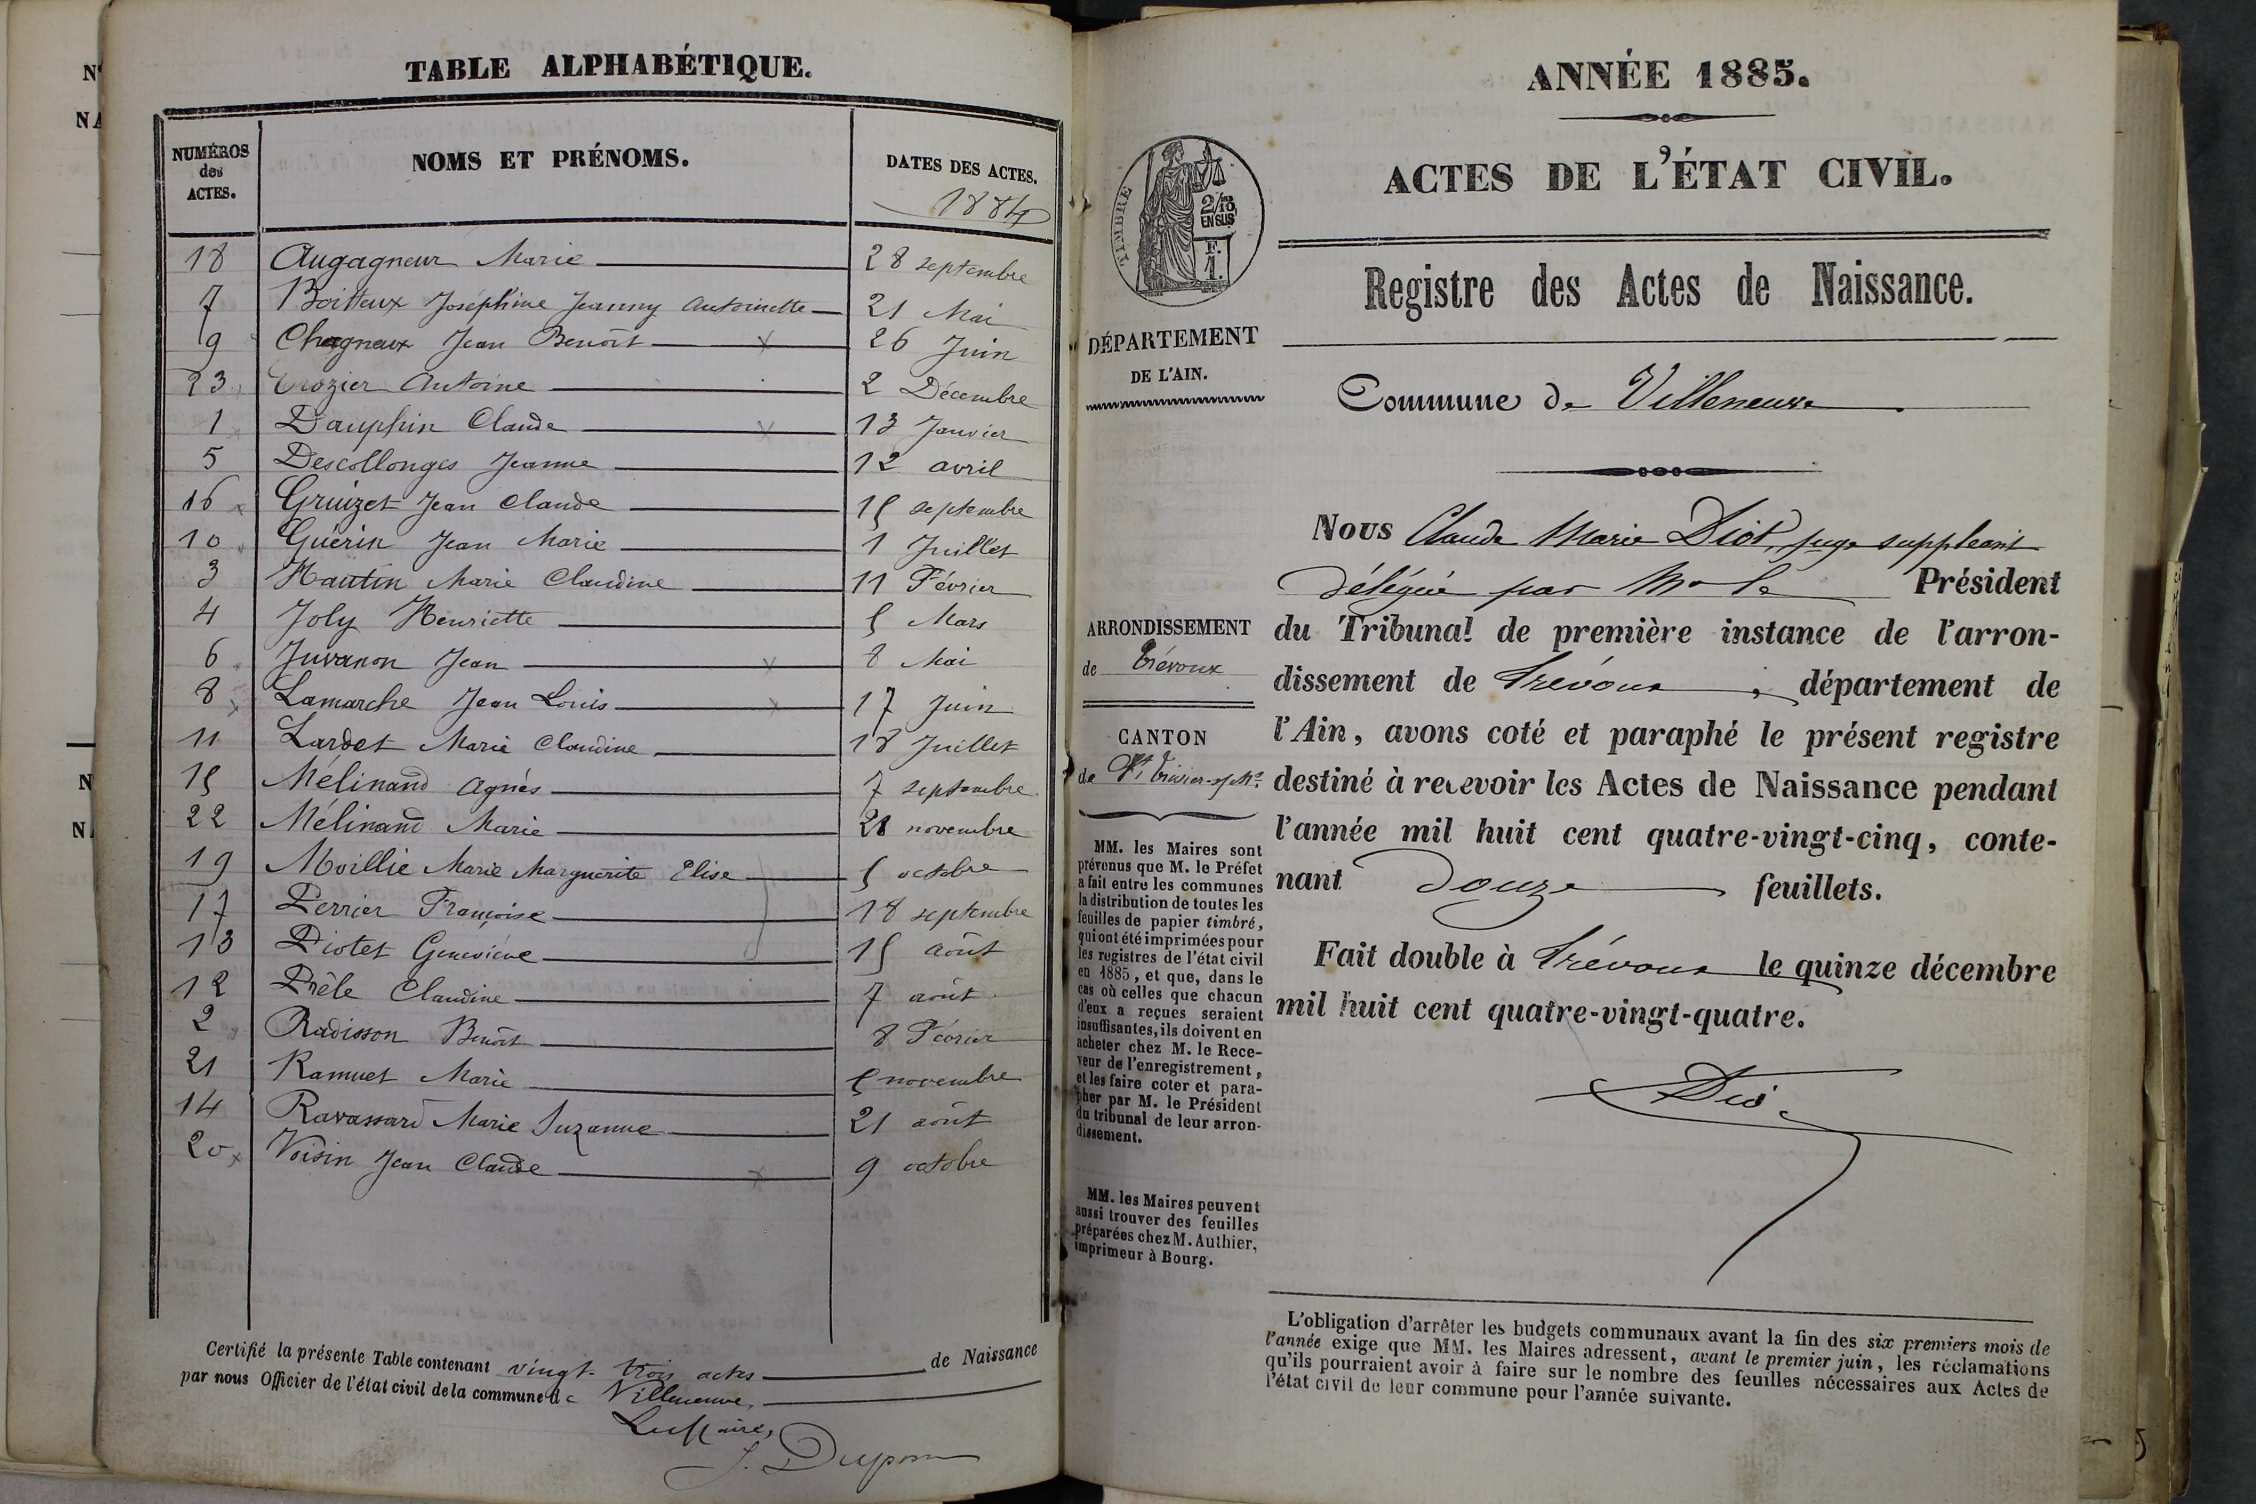 TABLE ALPHABÉTIQUE.
NUMÉROS des ACTES.
NOMS ET PRÉNOMS.
DATES DES ACTES.
1884
18 Augagneur Marie 28 septembre
7 Boitteux Joséphine Jeanny Antoinette 21 Mai
9 Chagneux Jean Benoît 26 Juin
23 Crozier Antoine 2 Décembre
1 Dauphin Claude 13 Janvier
5 Descollonges Jeanne 12 avril
16 Gruizet Jean Claude 15 septembre
10 Guérin Jean Marie 1 Juillet
3 Hautin Marie Claudine 11 Février
4 Joly Henriette 5 Mars
6 Juvanon Jean 8 Mai
8 Lamarche Jean Louis 17 Juin
11 Lardet Marie Claudine 18 Juillet
15 Mélinand Agnès 7 septembre
22 Mélinand Marie 28 novembre
19 Moillie Marie Marguerite Elise 5 octobre
17 Perrier Françoise 18 septembre
13 Piotet Geneviève 15 août
12 Prêle Claudine 7 août
2 Radisson Benoît 8 Février
21 Ramuet Marie 5 novembre
14 Ravassard Marie Suzanne 21 août
20 Voisin Jean Claude 9 octobre
Certifié la présente Table contenant vingt-trois actes de Naissance
par nous Officier de l'état civil de la commune de Villeneuve,
Le Maire,
J. Dupon
ANNÉE 1885.
ACTES DE L'ÉTAT CIVIL.
TIMBRE
2/10 EN SUS
F. 1.
Registre des Actes de Naissance.
DÉPARTEMENT
DE L'AIN.
Commune de Villeneuve
Nous Claude Marie Diot, juge suppléant
délégué par Mr le Président
du Tribunal de première instance de l'arron-
dissement de Trévoux, département de
l'Ain, avons coté et paraphé le présent registre
destiné à recevoir les Actes de Naissance pendant
l'année mil huit cent quatre-vingt-cinq, conte-
nant Douze feuillets.
Fait double à Trévoux le quinze décembre
mil huit cent quatre-vingt-quatre.
Diot
ARRONDISSEMENT
de Trévoux
CANTON
de St Trivier-s/-Ms
MM. les Maires sont
prévenus que M. le Préfet
a fait entre les communes
la distribution de toutes les
feuilles de papier timbré,
qui ont été imprimées pour
les registres de l'état civil
en 1885, et que, dans le
cas où celles que chacun
d'eux a reçues seraient
insuffisantes, ils doivent en
acheter chez M. le Rece-
veur de l'enregistrement,
et les faire coter et para-
pher par M. le Président
du tribunal de leur arron-
dissement.
MM. les Maires peuvent
aussi trouver des feuilles
préparées chez M. Authier,
imprimeur à Bourg.
L'obligation d'arrêter les budgets communaux avant la fin des six premiers mois de
l'année exige que MM. les Maires adressent, avant le premier juin, les réclamations
qu'ils pourraient avoir à faire sur le nombre des feuilles nécessaires aux Actes de
l'état civil de leur commune pour l'année suivante.